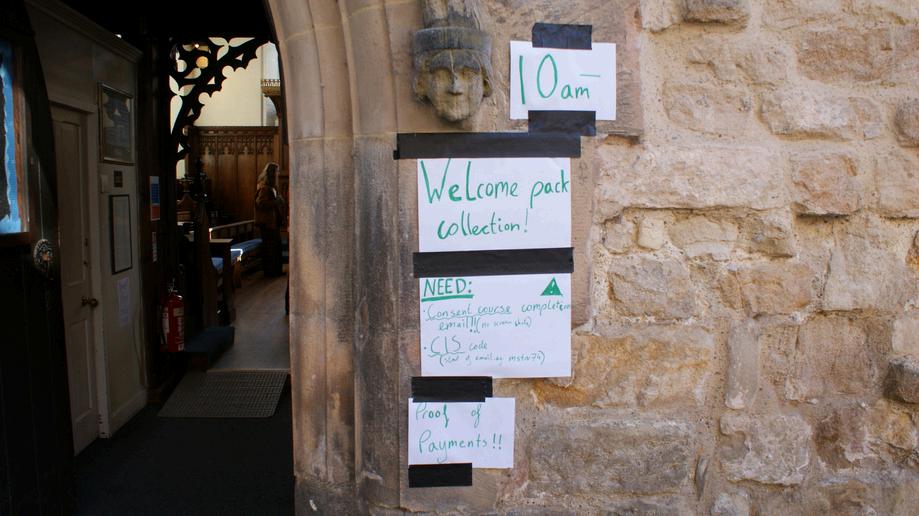 10am
Welcome pack
collection!
NEED:
· Consent course completion
email!! (no screen shots)
· CIS code
(start of email eg mstn74)
Proof of
Payments!!